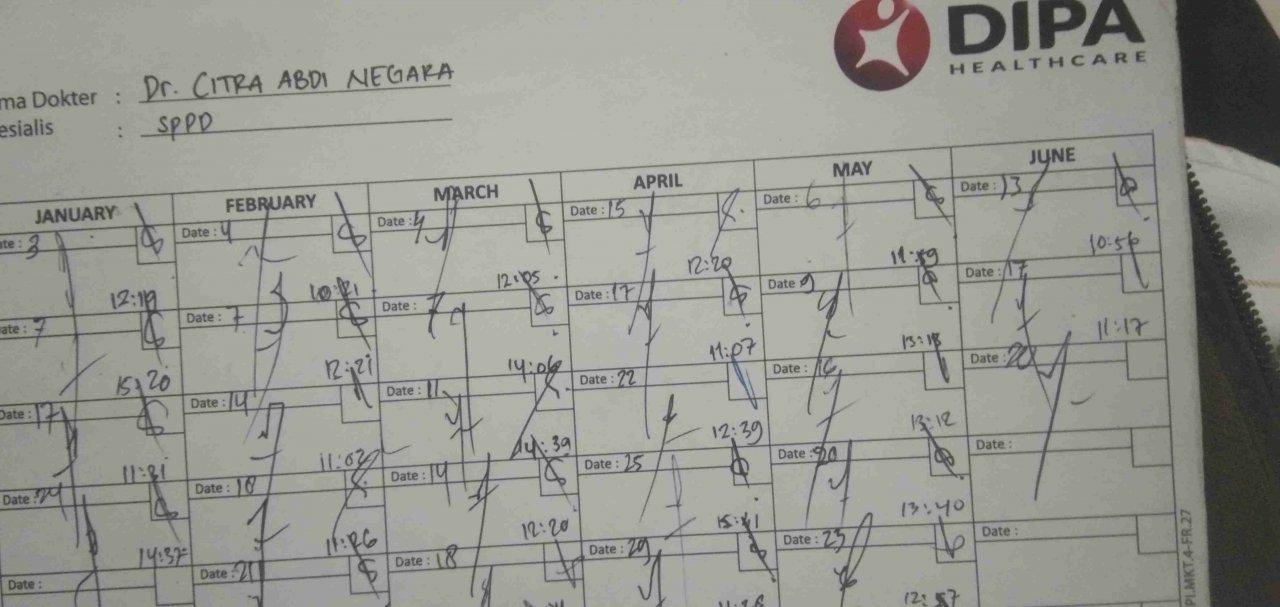 DIPA
HEALTHCARE
ma Dokter : Dr. CITRA ABDI NEGARA
esialis : SPPD
JANUARY FEBRUARY MARCH APRIL MAY JUNE
ate : 3 Date : 4 Date : 4 Date : 15 Date : 6 Date : 13
12:19 10:21 12:05 12:20 11:59 10:56
Date : 7 Date : 7 Date : 7 Date : 17 Date : 9 Date : 17
15:20 12:21 14:06 11:07 13:13 11:17
Date : 17 Date : 14 Date : 11 Date : 22 Date : 16 Date : 20
11:21 11:02 14:39 12:39 13:12
Date : 24 Date : 18 Date : 14 Date : 25 Date : 20 Date :
14:37 11:26 12:20 15:41 13:40
Date : Date : 21 Date : 18 Date : 29 Date : 23 Date :
12:57
PLMKT.4-FR.27